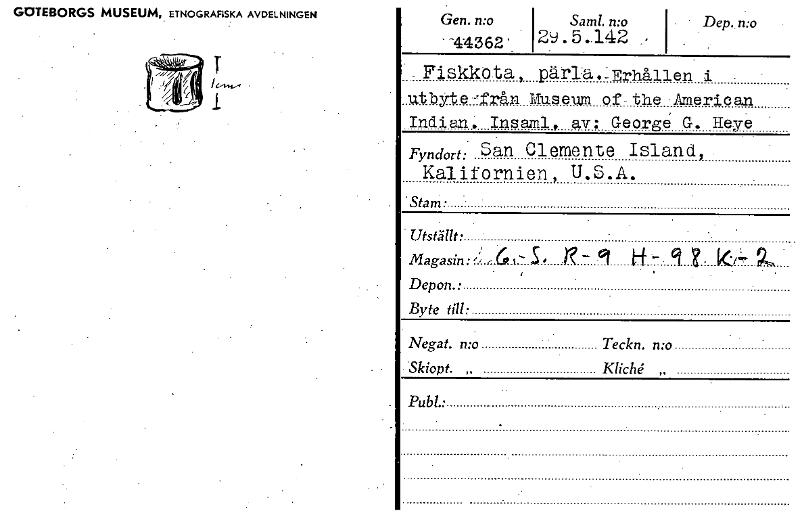 GÖTEBORGS MUSEUM, ETNOGRAFISKA AVDELNINGEN
1cm
Gen. n:o Saml. n:o Dep. n:o
44362 29.5.142
Fiskkota, pärla. Erhållen i
utbyte från Museum of the American
Indian. Insaml. av: George G. Heye
Fyndort: San Clemente Island,
Kalifornien, U.S.A.
Stam:
Utställt:
Magasin: G-S. R-9 H-98 K-2
Depon.:
Byte till:
Negat. n:o Teckn. n:o
Skiopt. „ Kliché „
Publ.: